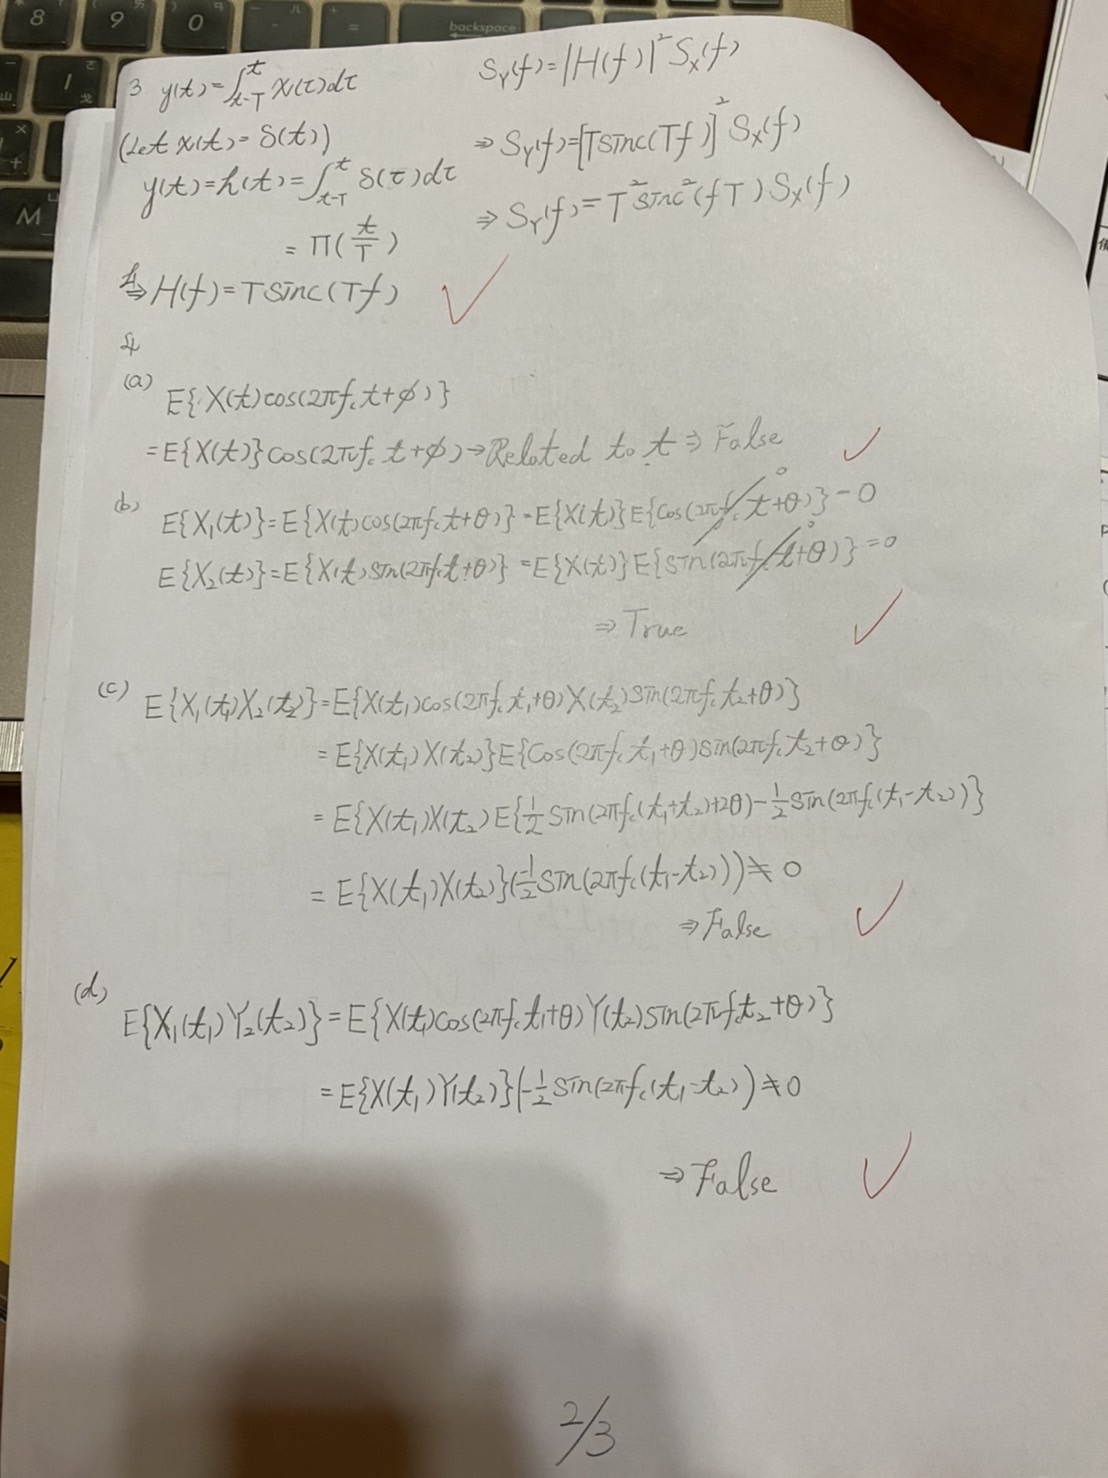 8 9 0 - =
backspace
M
3 y(t)=∫_{t-T}^{t} x(τ)dτ
(Let x(t)=δ(t))
y(t)=h(t)=∫_{t-T}^{t} δ(τ)dτ
= Π(t/T)
⇒ H(f)=Tsinc(Tf)
S_Y(f)=|H(f)|² S_X(f)
⇒ S_Y(f)=[Tsinc(Tf)]² S_X(f)
⇒ S_Y(f)=T²sinc²(fT) S_X(f)
4
(a) E{X(t)cos(2πf_c t+φ)}
=E{X(t)}cos(2πf_c t+φ)→Related to t ⇒ False
(b) E{X₁(t)}=E{X(t)cos(2πf_c t+θ)}=E{X(t)}E{cos(2πf_c t+θ)}=0
E{X₂(t)}=E{X(t)sin(2πf_c t+θ)}=E{X(t)}E{sin(2πf_c t+θ)}=0
⇒ True
(c) E{X₁(t₁)X₂(t₂)}=E{X(t₁)cos(2πf_c t₁+θ)X(t₂)sin(2πf_c t₂+θ)}
=E{X(t₁)X(t₂)}E{cos(2πf_c t₁+θ)sin(2πf_c t₂+θ)}
=E{X(t₁)X(t₂)E{½sin(2πf_c(t₁+t₂)+2θ)-½sin(2πf_c(t₁-t₂))}
=E{X(t₁)X(t₂)}(-½sin(2πf_c(t₁-t₂)))≠0
⇒ False
(d) E{X₁(t₁)Y₂(t₂)}=E{X(t₁)cos(2πf_c t₁+θ)Y(t₂)sin(2πf_c t₂+θ)}
=E{X(t₁)Y(t₂)}(-½sin(2πf_c(t₁-t₂))≠0
⇒ False
2/3